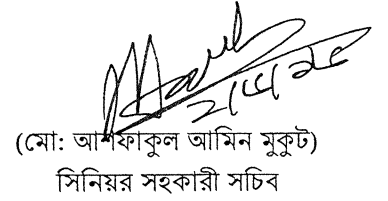 (মো: আশফাকুল আমিন মুকুট)
সিনিয়র সহকারী সচিব